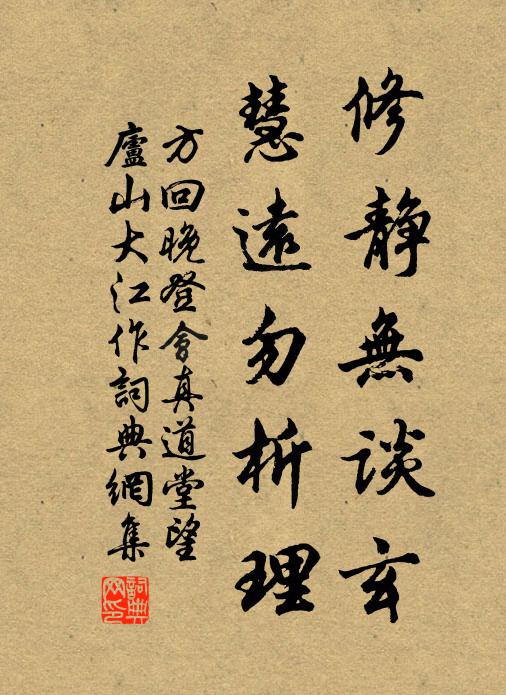 修静無談玄
慧遠勿析理
方回晚登會真道堂望
廬山大江作詞典網集
詞典網印